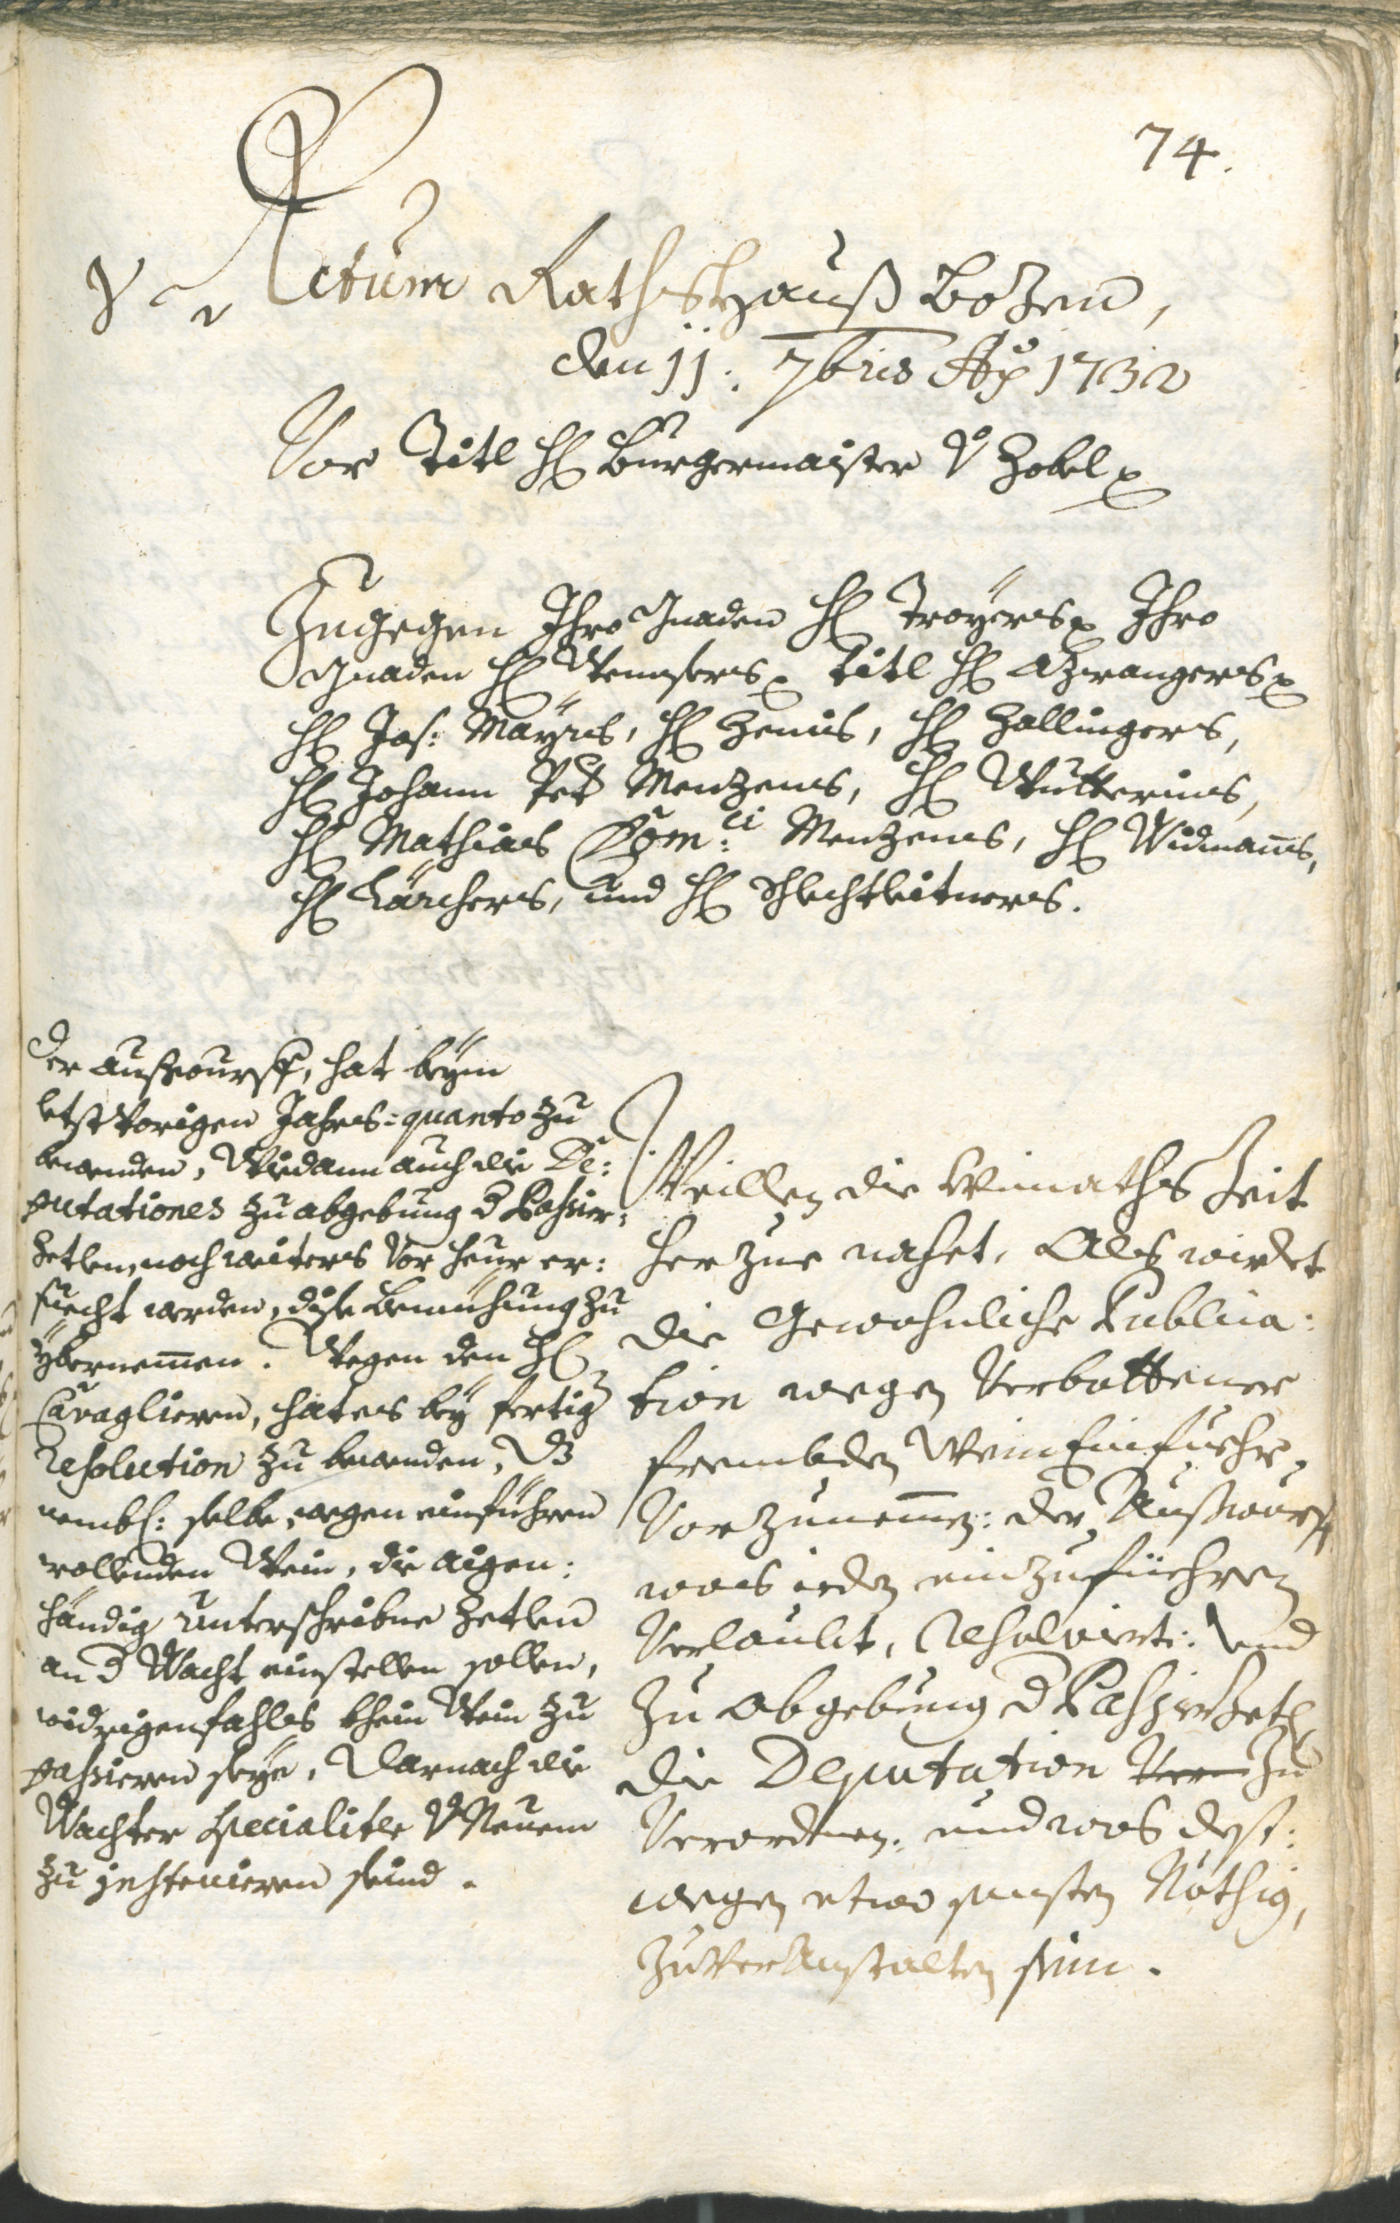 74.
Actum RathsHauß Bozen,
den 11. 7bris Ao 1732
Vor Titl H Burgermaister v Zobel
Zugegen Ihro Gnaden H Troÿers Ihro
Gnaden H Wensers Titl H Azwangers
H Jos: Maÿrs, H Zenis, H Zallingers,
H Johann Pet Menzens, H Wutterins,
H Mathias Dom:ci Menzens, H Widmans,
H Lärchers, und H Schlechtleitners.
Der außwurff, hat beÿm
letst Vorigen Jahrs=quanto zu
bewenden, Wie dann auch die De:
putationes zu abgebung d Passier:
zetlen, noch weiters Vor heur er:
suecht werden, dise bemühung zu
ÿbernemen. Wegen den H
Cavaglieren, hat es beÿ fertig
resolution zu bewenden, dz
nembl: selbe, wegen einführen
wollenden Wein, die aigen:
händig unterschribne zetlen
an d Wacht einstellen sollen,
widrigenfahls khein Wein zu
passieren seÿe, Darnach die
Wachter specialiter v Neuem
zu instruieren seind.
Weillen die Wimaths Zeit
herzue nahet, Als wirdet
die Gewohnliche Publica:
tion wegen Verbottener
frembden Wein Einfuehr,
Vorzunemen: der Außwurff
was ieden einzufüehren
Verlaubt, Resolviert: und
zu abgebung d Passierzetl
die Deputation zu
Verordnen, und was dess:
wegen etwo sonsten Nöthig,
zu Veranstalten sein.